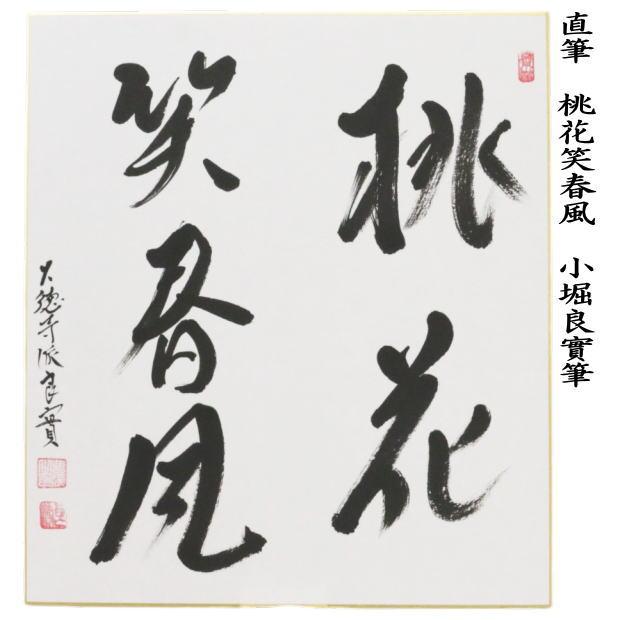 直筆　桃花笑春風　小堀良實筆
桃花
笑春風
大徳寺派良實